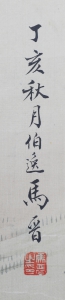 丁亥秋月伯逸馬晋